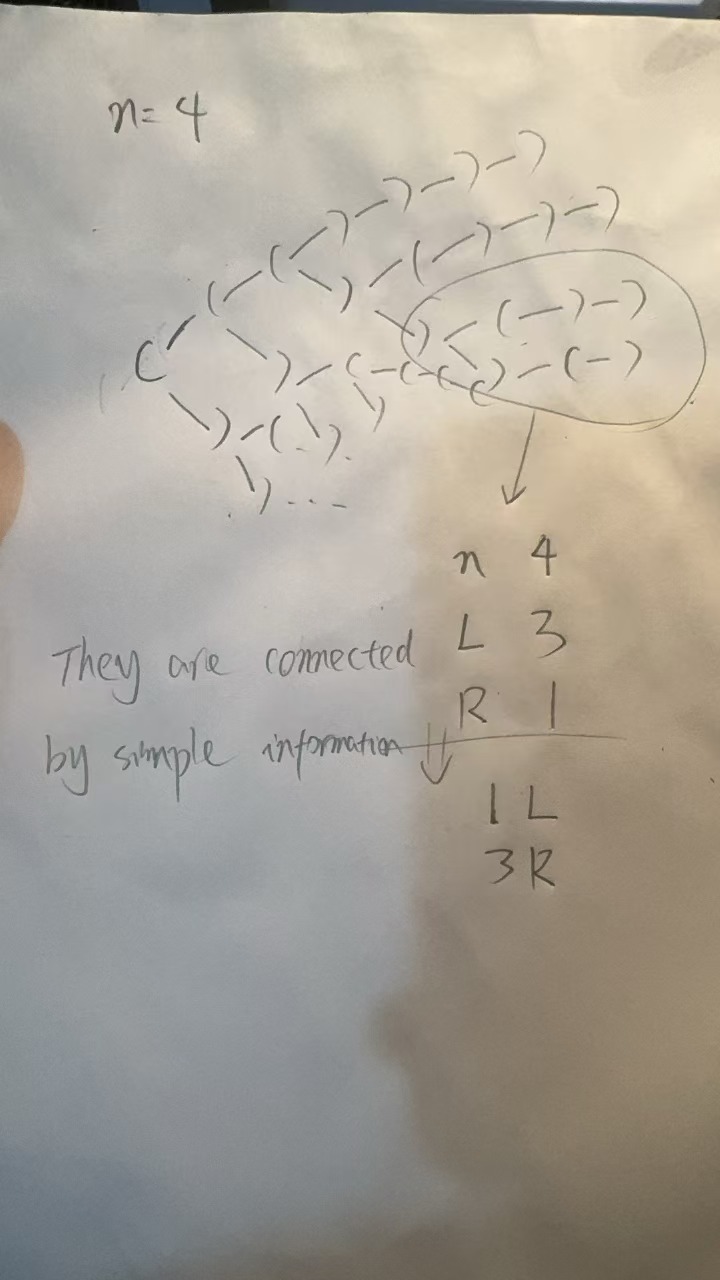 n=4
( ( ( ) ) ) )
) ( ) ) )
) ( ) )
) ( ( ( ( ) ( )
) ( ) )
) ...
n 4
L 3
R 1
They are connected
by simple information
1 L
3 R